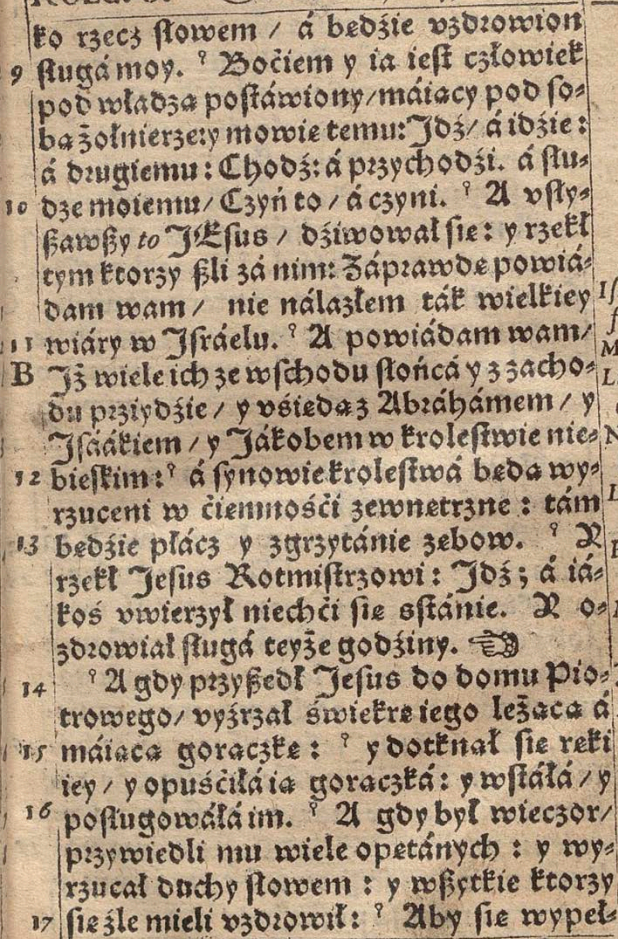 ko rzecz słowem / á będźie vzdrowion
9 sługá moy. Boćiem y ia iest człowiek
pod władzą postáwiony / máiący pod so-
bą żołnierze: y mowię temu: Idź / á idźie:
á drugiemu: Chodź: á przychodźi. á słu-
10 dze moiemu / Czyń to / á czyni. A vsły-
szawszy to IEsus / dźiwował się: y rzekł
tym ktorzy szli zá nim: Záprawdę powiá-
dam wam / nie nálazłem ták wielkiey
11 wiáry w Isráelu. A powiádam wam /
B Iż wiele ich ze wschodu słońcá y z zacho-
du prziydźie / y vśiędą z Abráhámem / y
Isáákiem / y Iákobem w krolestwie nie-
12 bieskim: á synowie krolestwá będą wy-
rzuceni w ćiemnośći zewnętrzne: tám
13 będźie płácz y zgrzytánie zębow. Y
rzekł Iesus Rotmistrzowi: Idź; á iá-
koś vwierzył niechći się sstánie. Y o-
zdrowiał sługá teyże godźiny. ☜
14 A gdy przyszedł Iesus do domu Pio-
trowego / vyźrzał świekrę iego leżącą á
15 máiącą gorączkę: y dotknął się ręki
iey / y opuśćiłá ią gorączká: y wstáłá / y
16 posługowáłá im. A gdy był wieczor /
przywiedli mu wiele opętánych: y wy-
rzucał duchy słowem: y wszytkie ktorzy
17 się źle mieli vzdrowił: Aby się wypeł-